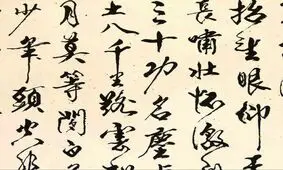 抬望眼仰天
長嘯壯懷激
三十功名塵與
土八千里路雲和
月莫等閒白
少年頭空悲